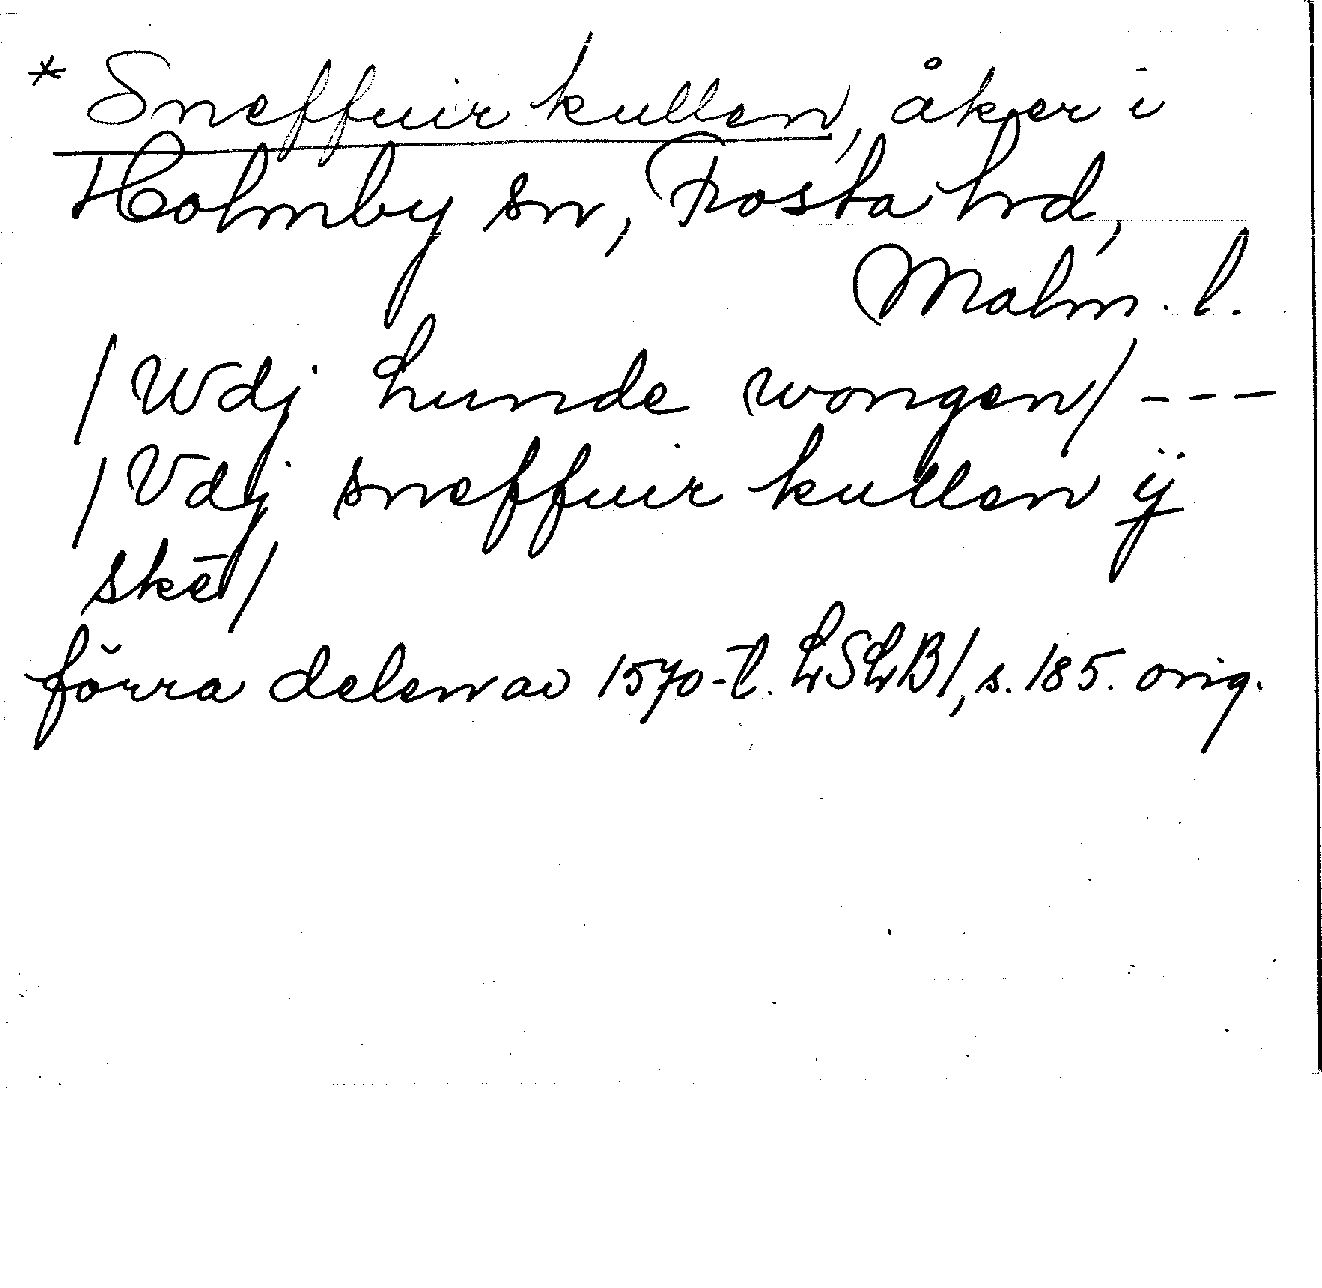 * Sneffuir kullen, åker i
Holmby sn, Frosta hrd,
Malm. l.
/Wdj hunde wongen/ ---
/Vdj sneffuir kullen ij
skē/
förra delen av 1570-t. LSLB1, s. 185. orig.